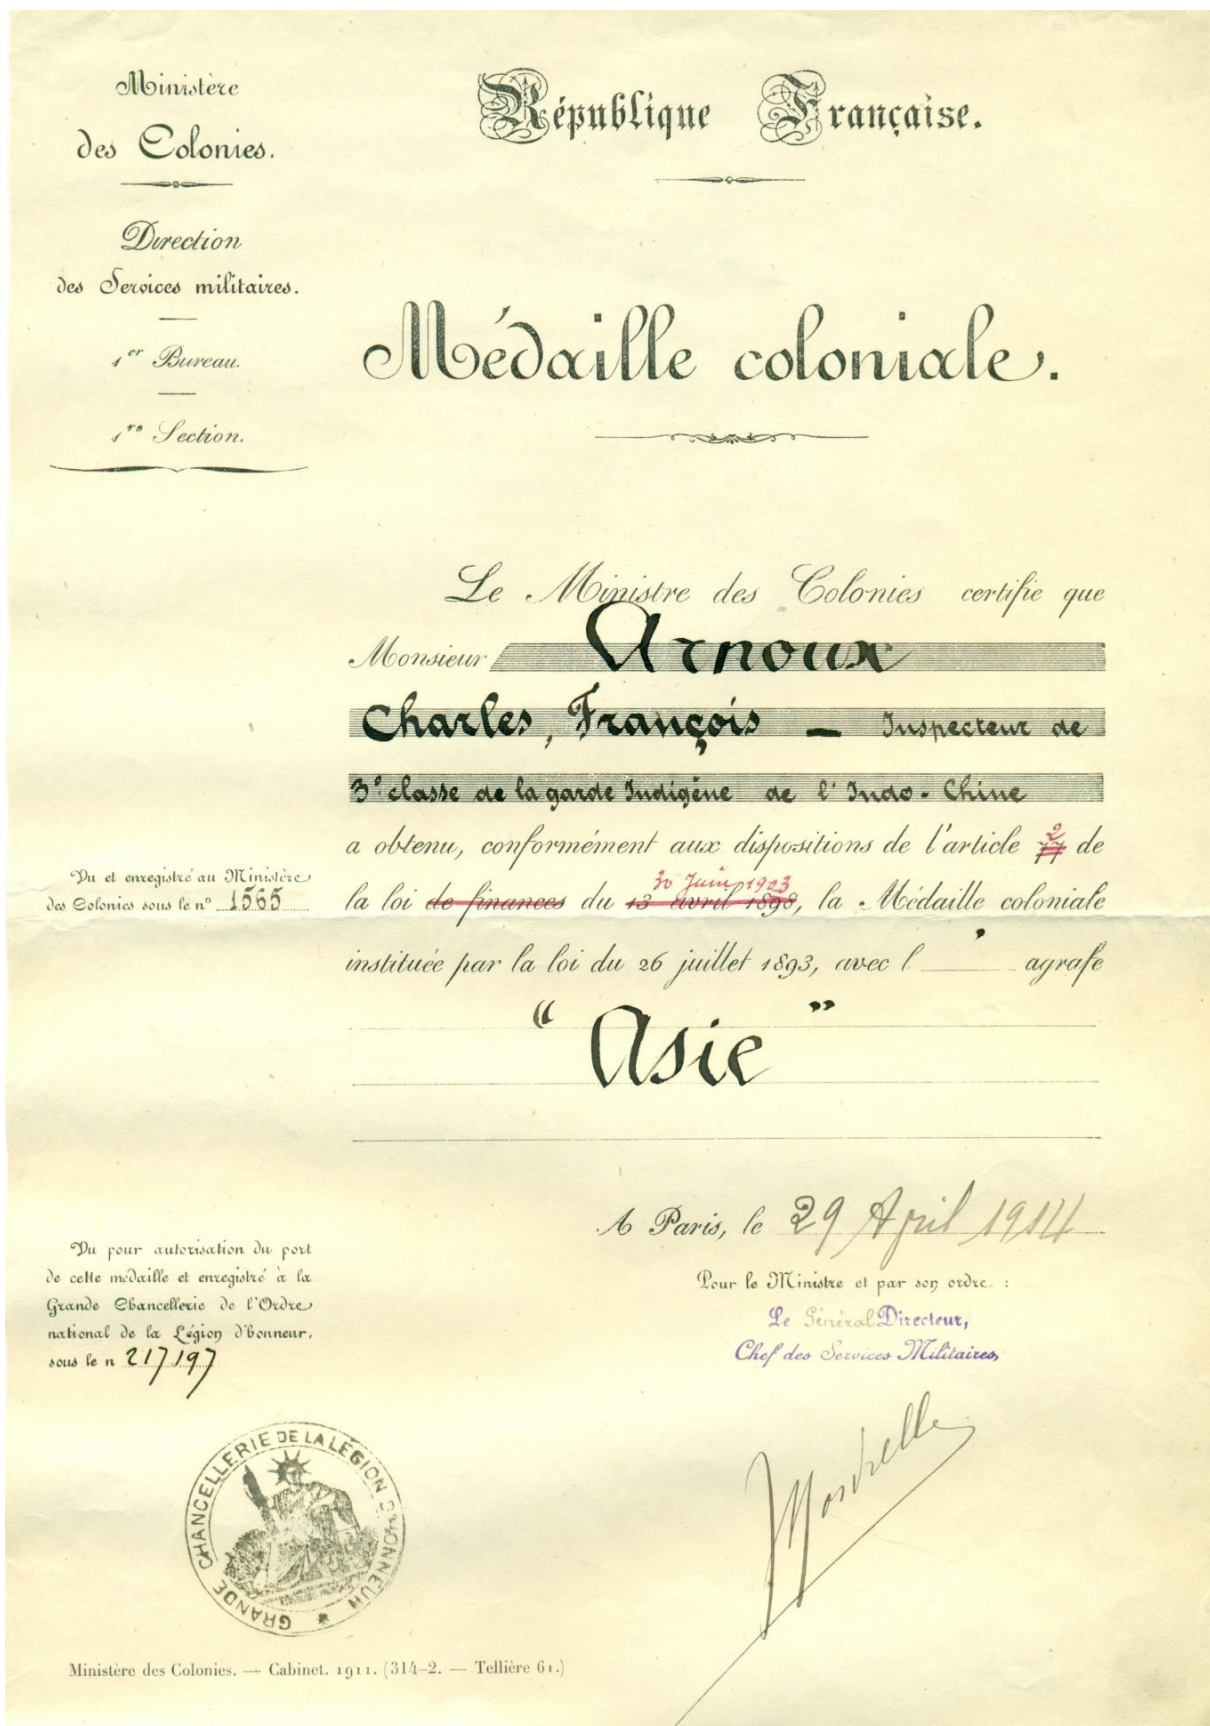 Ministère
des Colonies.
Direction
des Services militaires.
1er Bureau.
1re Section.
République Française.
Médaille coloniale.
Le Ministre des Colonies certifie que
Monsieur Arnoux
Charles, François — Inspecteur de
3e classe de la garde Indigène de l'Indo-Chine
a obtenu, conformément aux dispositions de l'article 77 2 de
la loi de finances du 13 avril 1898 30 Juin 1903, la Médaille coloniale
instituée par la loi du 26 juillet 1893, avec l' agrafe
"Asie"
Vu et enregistré au Ministère
des Colonies sous le n° 1565
A Paris, le 29 April 1914
Pour le Ministre et par son ordre :
Le Général Directeur,
Chef des Services Militaires,
Vu pour autorisation du port
de cette médaille et enregistré à la
Grande Chancellerie de l'Ordre
national de la Légion d'honneur,
sous le n 217197
GRANDE CHANCELLERIE DE LA LÉGION D'HONNEUR
Ministère des Colonies. — Cabinet. 1911. (314-2. — Tellière 61.)